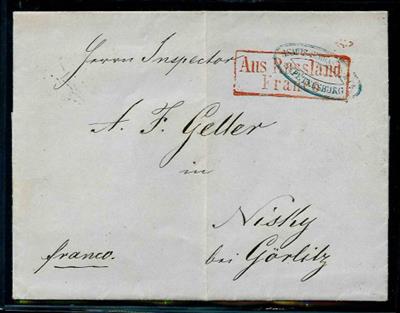 Herrn Inspector
Aus Russland
Franco
PETERSBURG
A. F. Geller
in
Nisky
bei Görlitz
franco.